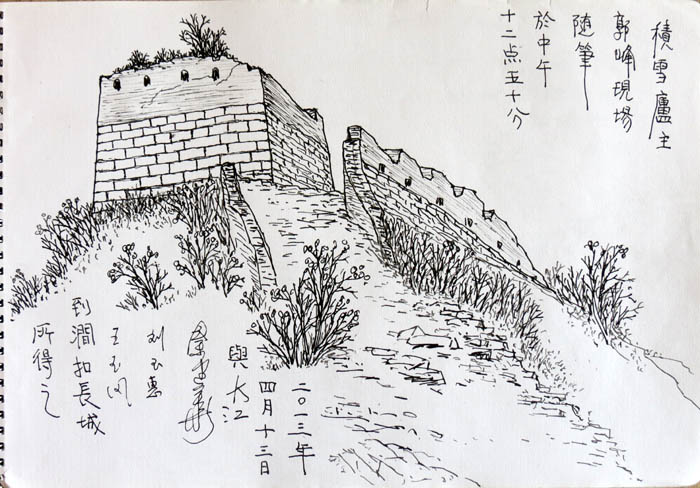 積雪廬主
郭現場
随筆
於中午
十二点五十分
二〇一三年
四月十三日
與大江
刘玉惠
王玉风
到澗扣長城
所得之